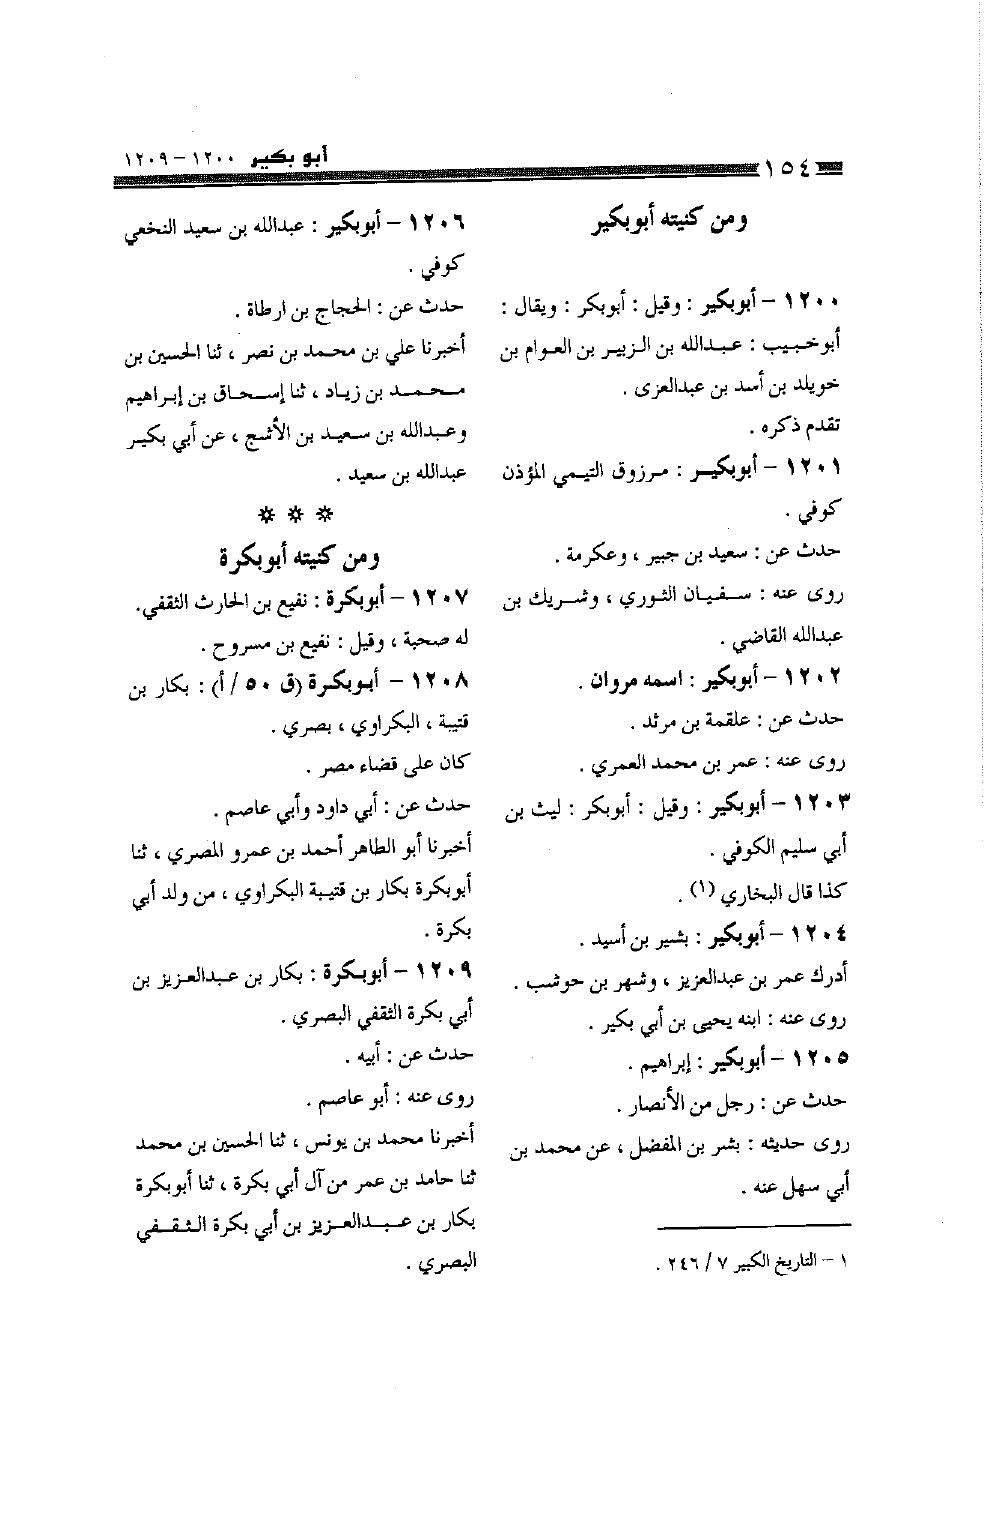 ١٥٤
أبو بكير ١٢٠٠ - ١٢٠٩
ومن كنيته أبوبكير
١٢٠٠ - أبوبكير : وقيل : أبوبكر : ويقال :
أبوخبيب : عبدالله بن الزبير بن العوام بن
خويلد بن أسد بن عبدالعزى .
تقدم ذكره .
١٢٠١ - أبوبكير : مرزوق التيمي المؤذن
كوفي .
حدث عن : سعيد بن جبير ، وعكرمة .
روى عنه : سفيان الثوري ، وشريك بن
عبدالله القاضي .
١٢٠٢ - أبوبكير : اسمه مروان .
حدث عن : علقمة بن مرثد .
روى عنه : عمر بن محمد العمري .
١٢٠٣ - أبوبكير : وقيل : أبوبكر : ليث بن
أبي سليم الكوفي .
كذا قال البخاري (١) .
١٢٠٤ - أبوبكير : بشير بن أسيد .
أدرك عمر بن عبدالعزيز ، وشهر بن حوشب .
روى عنه : ابنه يحيى بن أبي بكير .
١٢٠٥ - أبوبكير : إبراهيم .
حدث عن : رجل من الأنصار .
روى حديثه : بشر بن المفضل ، عن محمد بن
أبي سهل عنه .
١ - التاريخ الكبير ٧ / ٢٤٦ .
١٢٠٦ - أبوبكير : عبدالله بن سعيد النخعي
كوفي .
حدث عن : الحجاج بن ارطاة .
أخبرنا علي بن محمد بن نصر ، ثنا الحسين بن
محمد بن زياد ، ثنا إسحاق بن إبراهيم
وعبدالله بن سعيد بن الأشج ، عن أبي بكير
عبدالله بن سعيد .
* * *
ومن كنيته أبوبكرة
١٢٠٧ - أبوبكرة : نفيع بن الحارث الثقفي.
له صحبة ، وقيل : نفيع بن مسروح .
١٢٠٨ - أبوبكرة (ق ٥٠ / أ) : بكار بن
قتيبة ، البكراوي ، بصري .
كان على قضاء مصر .
حدث عن : أبي داود وأبي عاصم .
أخبرنا أبو الطاهر أحمد بن عمرو المصري ، ثنا
أبوبكرة بكار بن قتيبة البكراوي ، من ولد أبي
بكرة .
١٢٠٩ - أبوبكرة : بكار بن عبدالعزيز بن
أبي بكرة الثقفي البصري .
حدث عن : أبيه .
روى عنه : أبو عاصم .
أخبرنا محمد بن يونس ، ثنا الحسين بن محمد
ثنا حامد بن عمر من آل أبي بكرة ، ثنا أبوبكرة
بكار بن عبدالعزيز بن أبي بكرة الثقفي
البصري .